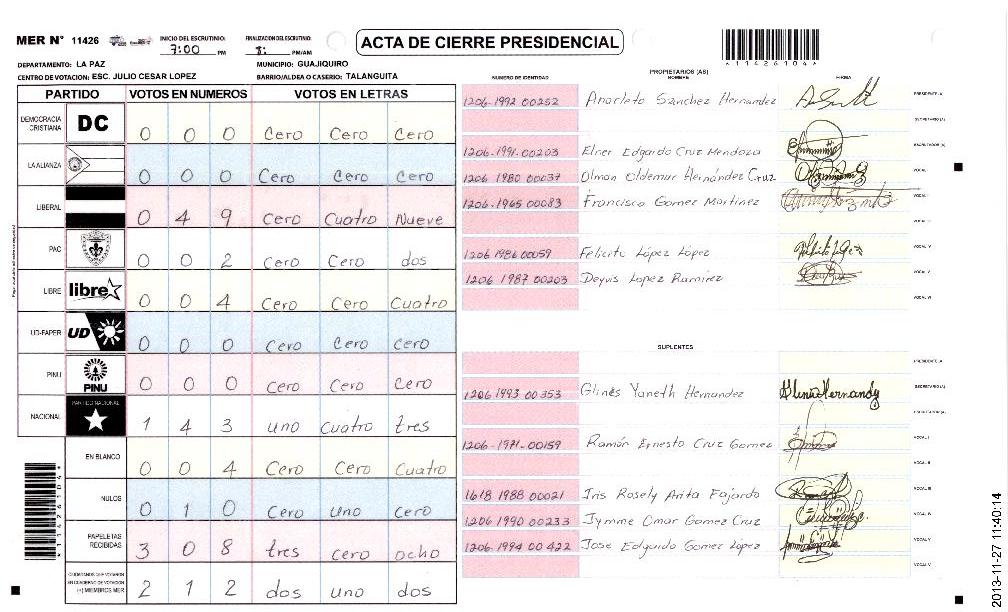 MER N° 11426
INICIO DEL ESCRUTINIO: 7:00 PM
FINALIZACION DEL ESCRUTINIO: 8: PM/AM
ACTA DE CIERRE PRESIDENCIAL
*11426104*
DEPARTAMENTO: LA PAZ
MUNICIPIO: GUAJIQUIRO
CENTRO DE VOTACION: ESC. JULIO CESAR LOPEZ
BARRIO/ALDEA O CASERIO: TALANGUITA
PARTIDO VOTOS EN NUMEROS VOTOS EN LETRAS
DEMOCRACIA CRISTIANA DC 0 0 0 Cero Cero Cero
LA ALIANZA 0 0 0 Cero Cero Cero
LIBERAL 0 4 9 Cero Cuatro Nueve
PAC 0 0 2 Cero Cero dos
LIBRE libre 0 0 4 Cero Cero Cuatro
UD-FAPER UD 0 0 0 Cero Cero Cero
PINU PINU 0 0 0 Cero Cero Cero
NACIONAL PARTIDO NACIONAL 1 4 3 uno Cuatro tres
EN BLANCO 0 0 4 Cero Cero Cuatro
NULOS 0 1 0 Cero uno Cero
PAPELETAS RECIBIDAS 3 0 8 tres cero ocho
CIUDADANOS QUE VOTARON EN CUADERNO DE VOTACION (+) MIEMBROS MER 2 1 2 dos uno dos
PROPIETARIOS (AS)
NUMERO DE IDENTIDAD NOMBRE FIRMA
1206-1992 00252 Anarleto Sanchez Hernandez PRESIDENTE-A
SECRETARIO (A)
1206-1991-00203 Elner Edgardo Cruz Mendoza ESCRUTADOR (A)
1206 1980 00037 Olman Oldemar Hernández Cruz VOCAL I
1206-1965 00083 Francisco Gomez Martinez VOCAL II
VOCAL III
1206 1986 00059 Felicito López López VOCAL IV
1206 1987 00203 Deyvis Lopez Ramirez VOCAL V
VOCAL VI
SUPLENTES
PRESIDENTE-A
1206 1993 00353 Glinés Yaneth Hernandez SECRETARIO (A)
ESCRUTADOR (A)
1206-1971-00159 Ramón Ernesto Cruz Gomez VOCAL I
VOCAL II
1618 1988 00021 Iris Rosely Arita Fajardo VOCAL III
1206 1990 00233 Jymme Omar Gomez Cruz VOCAL IV
1206 1994 00422 Jose Edgardo Gomez López VOCAL V
VOCAL VI
2013-11-27 11:40:14